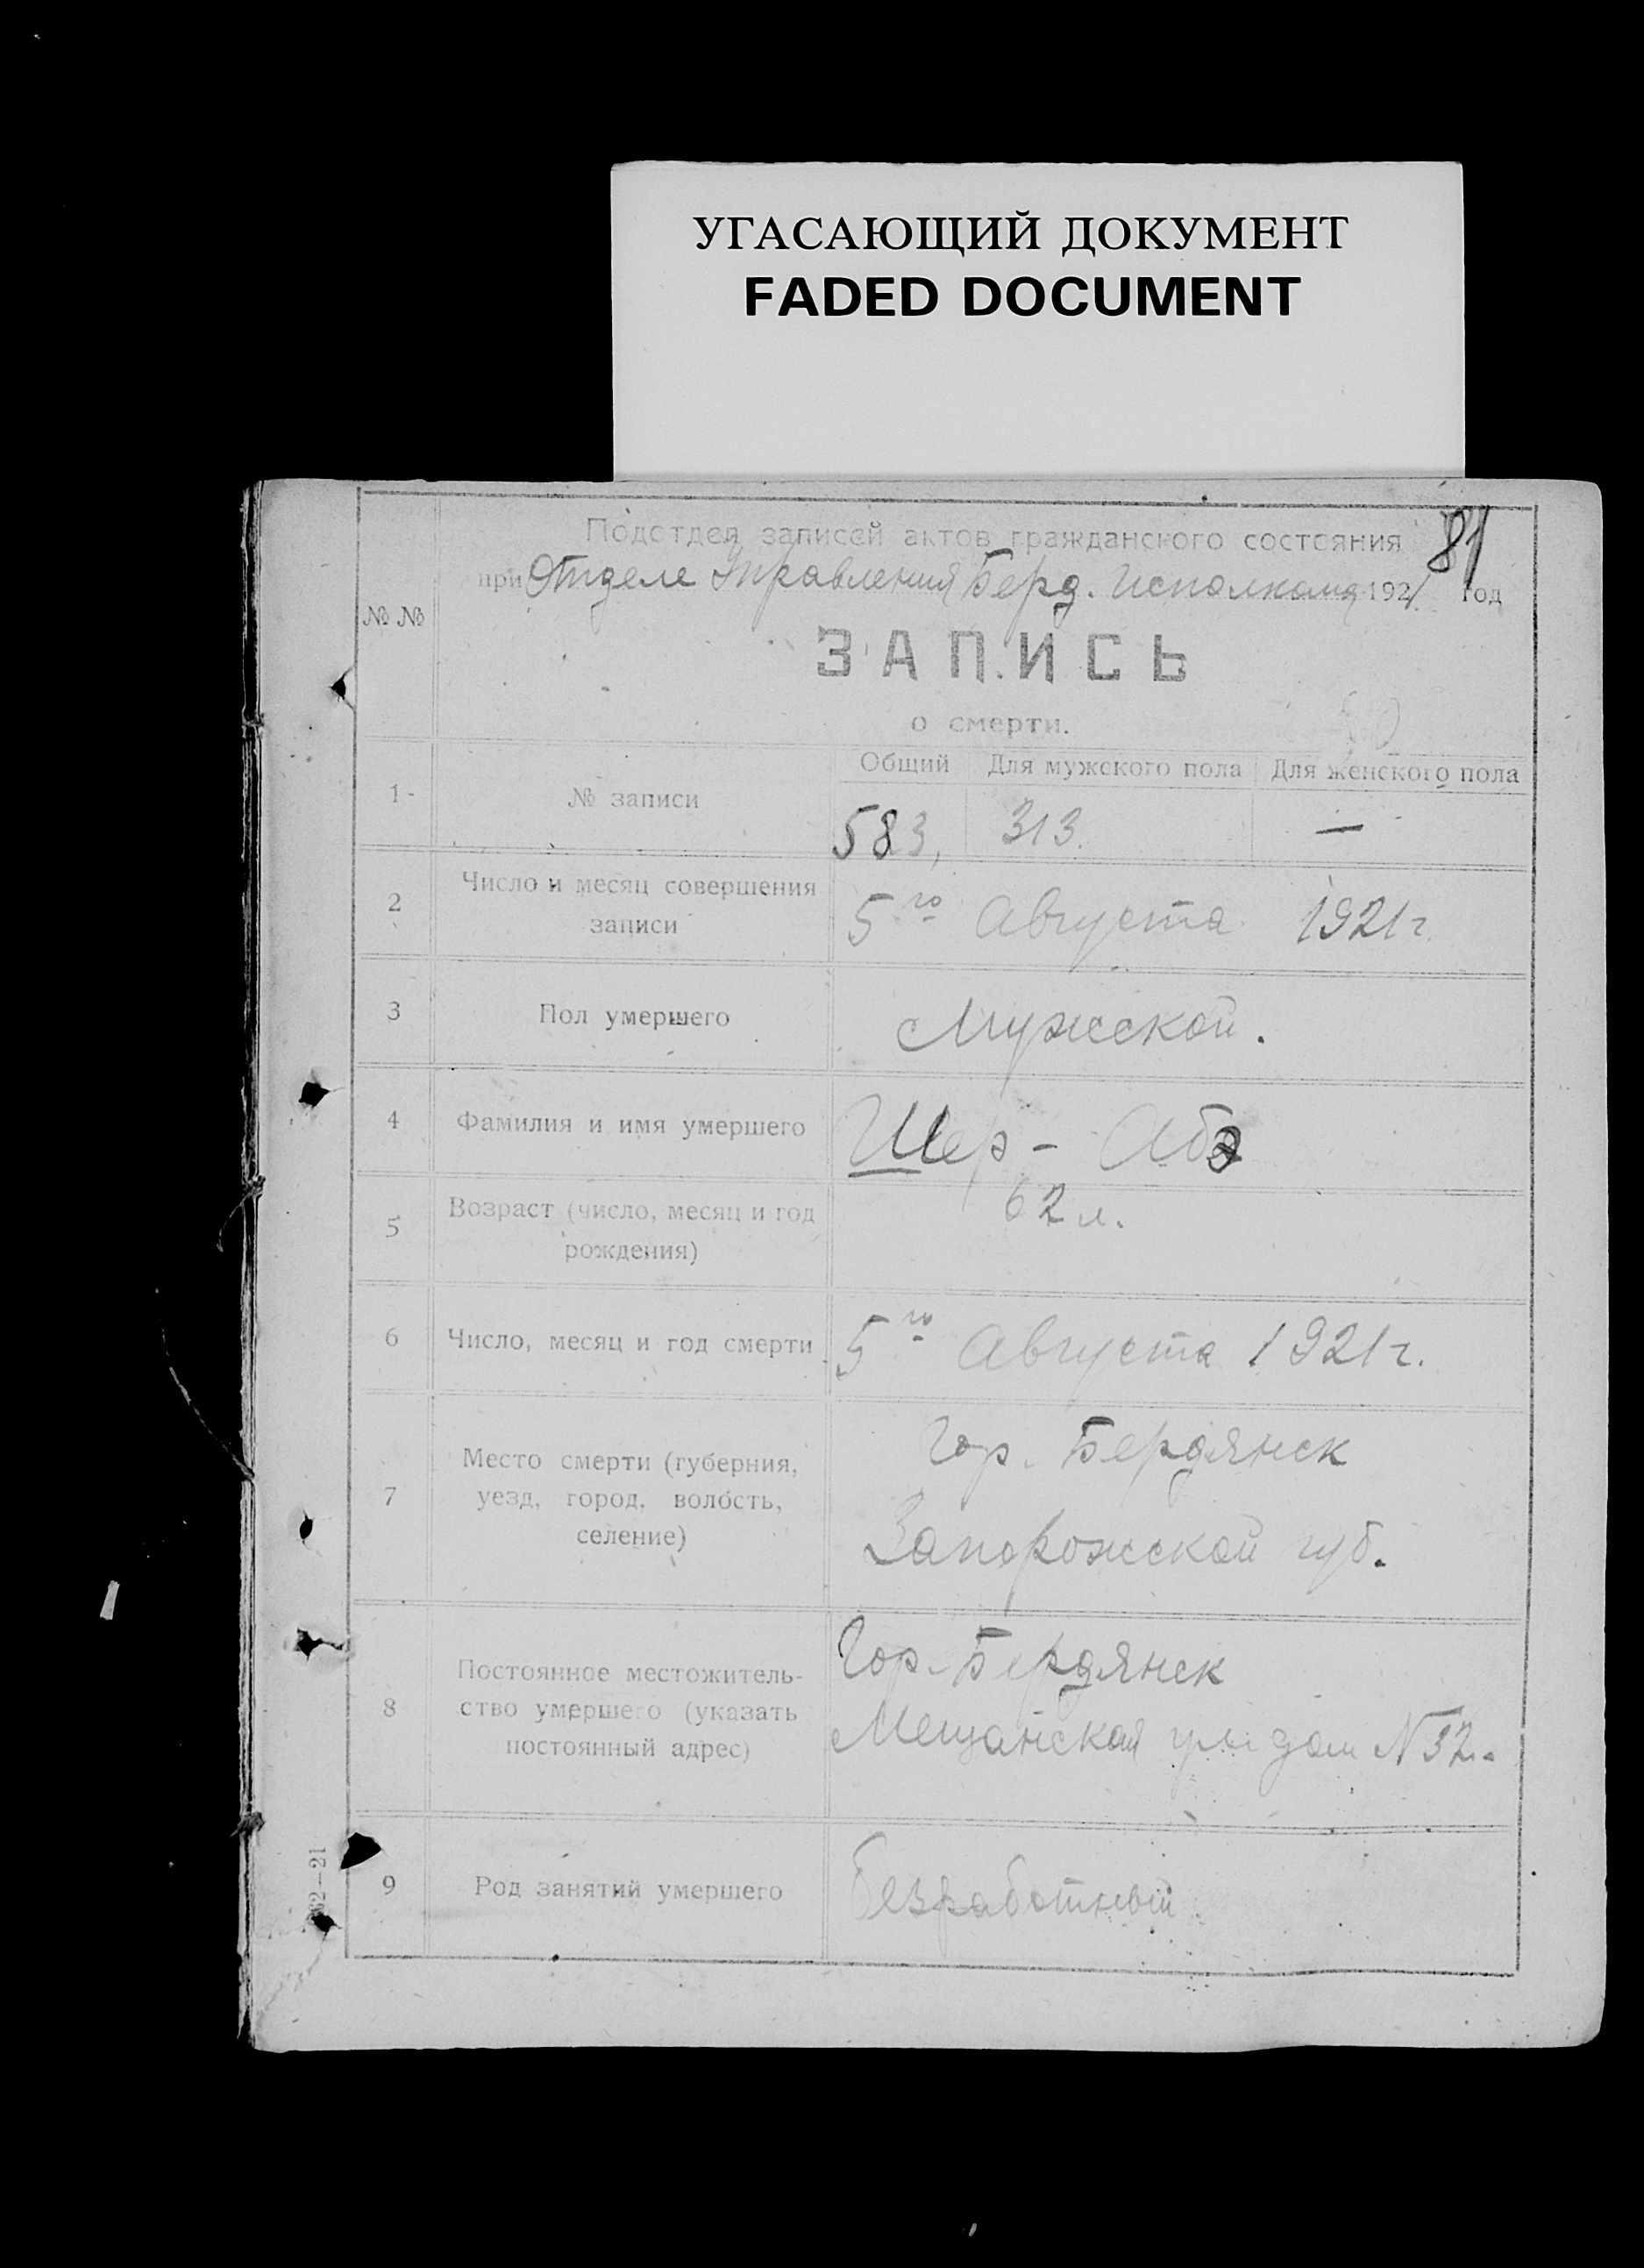 УГАСАЮЩИЙ ДОКУМЕНТ
FADED DOCUMENT
81
Подотдел записей актов гражданского состояния
при Отделе Управления Берд. Исполкома 1921 год
№ №
ЗАПИСЬ
о смерти.
Общий Для мужского пола Для женского пола
1 - № записи 583, 313. —
2 Число и месяц совершения
записи
5го Августа 1921 г.
3 Пол умершего Мужской.
4 Фамилия и имя умершего Шер -
5 Возраст (число, месяц и год
рождения)
62 л.
6 Число, месяц и год смерти 5го Августа 1921 г.
7 Место смерти (губерния,
уезд, город, волость,
селение)
Гор. Бердянск
Запорожской губ.
8 Постоянное местожитель-
ство умершего (указать
постоянный адрес)
Гор. Бердянск
Мещанская дом N 32.
9 Род занятий умершего Безработный
62—21